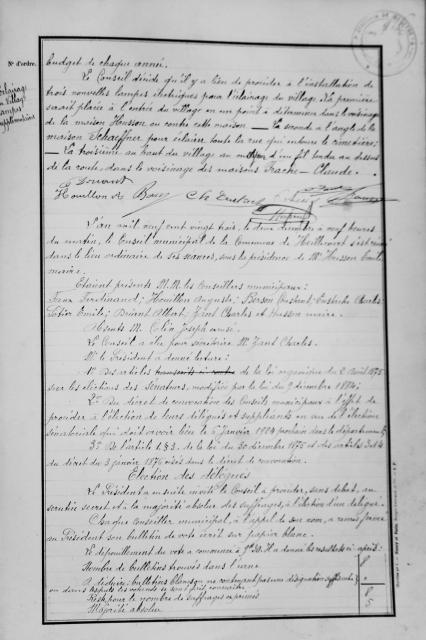 N° d'ordre.
Eclairage
du Village
Lampes
supplémentaires
budget de chaque année.
Le Conseil décide qu'il y a lieu de procéder à l'installation de
trois nouvelles lampes électriques pour l'éclairage du village. La première
serait placée à l'entrée du village en un point à déterminer dans le voisinage
de la maison Husson ou contre cette maison — La seconde à l'angle de la
maison Schaeffner pour éclairer toute la rue qui entoure le cimetière;
— La troisième au haut du village au moyen d'un fil tendu au dessus
de la route, dans le voisinage des maisons Frache-Claude.
L'an mil neuf cent vingt trois, le deux décembre à neuf heures
du matin, le Conseil municipal de la Commune de s'est réuni
dans le lieu ordinaire de ses séances, sous la présidence de Mr Husson Emile
maire.
Etaient présents M.M. les Conseillers municipaux:
Ferdinand; Houillon Auguste; Constant; Eustache Charles;
Emile; Albert; Zant Charles et Husson maire.
Absents M. Colin Joseph excusé.
Le Conseil a élu pour secrétaire Mr. Zant Charles.
Mr. le Président a donné lecture:
1° Des articles de la loi organique du 2 Août 1875
sur les élections des Sénateurs, modifiée par la loi du 9 décembre 1884;
2° Du décret de convocation des Conseils municipaux à l'effet de
procéder à l'élection de leurs délégués et suppléants en vue de l'élection
sénatoriale qui doit avoir lieu le 6 janvier 1924 prochain dans le département;
3° De l'article 1 § 3 de la loi du 30 décembre 1875 et des articles 3 et 4
du décret du 3 janvier 1876 visés dans le décret de convocation.
Election des délégués
Le Président a ensuite invité le Conseil à procéder, sans débat, au
scrutin secret et à la majorité absolue des suffrages, à l'élection d'un délégué.
Chaque Conseiller municipal, à l'appel de son nom, a remis fermé
au Président son bulletin de vote écrit sur papier blanc.
Le dépouillement du vote a commencé à 9h 30. Il a donné les résultats ci-après:
Nombre de bulletins trouvés dans l'urne 8
A déduire: bulletins blancs ou ne contenant pas une désignation suffisante
ou dans lesquels les votants se sont fait connaître
Reste pour le nombre de suffrages exprimés 8
Majorité absolue 5